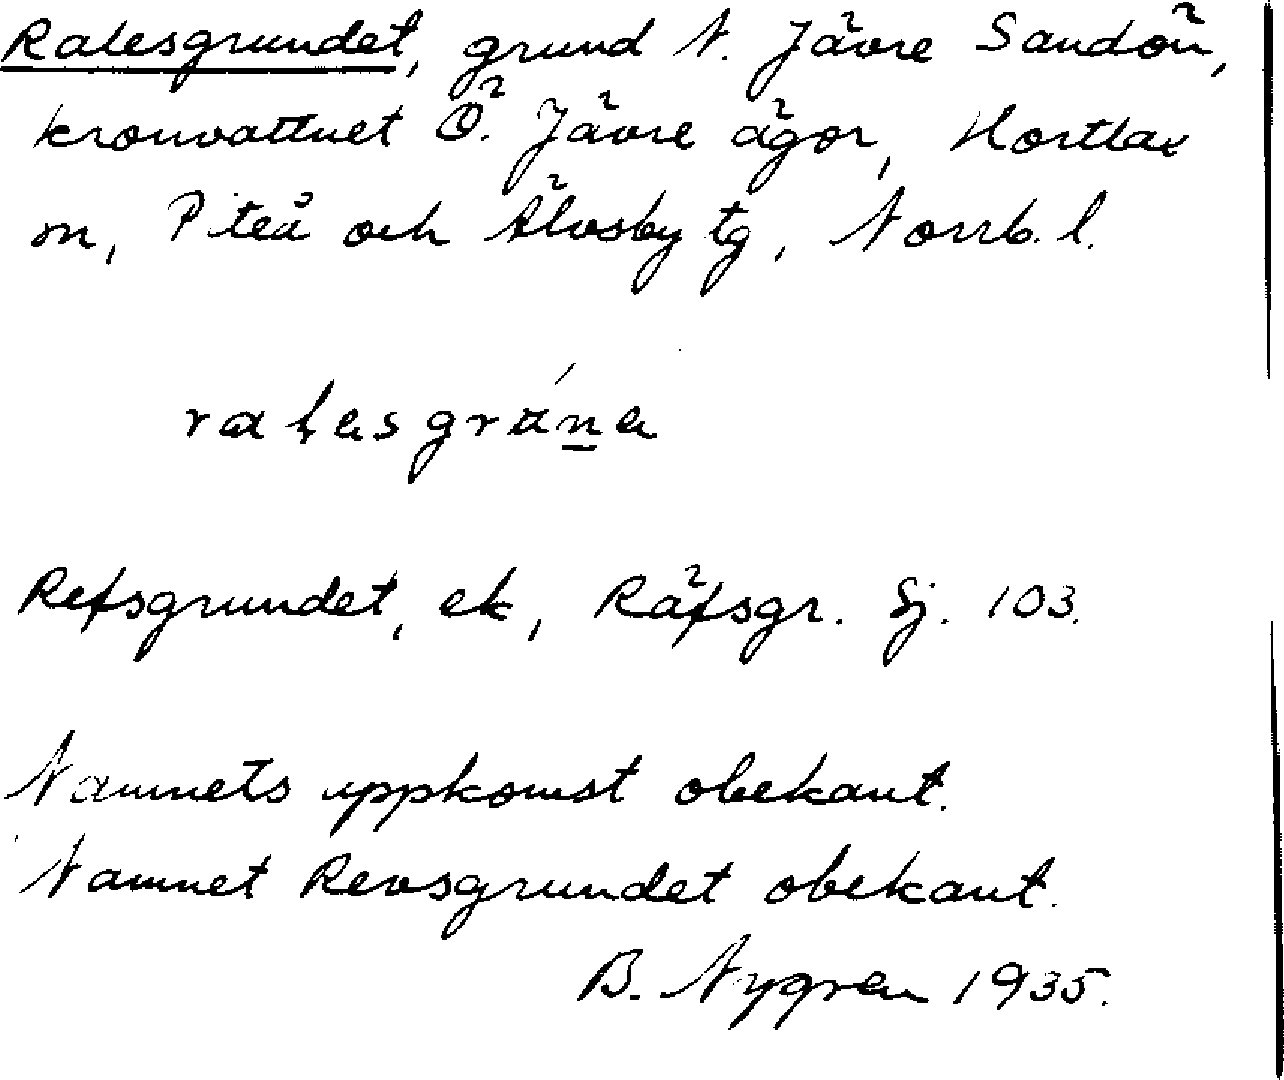 Ralesgrundet, grund N. Jävre Sandön,
kronvattnet Ö. Jävre ägor, Hortlax
sn, Piteå och Älvsby tg, Norrb. l.
Refsgrundet, ek, Räfsgr. Sj. 103.
Namnets uppkomst obekant.
Namnet Revsgrundet obekant.
B. Nygren 1935.